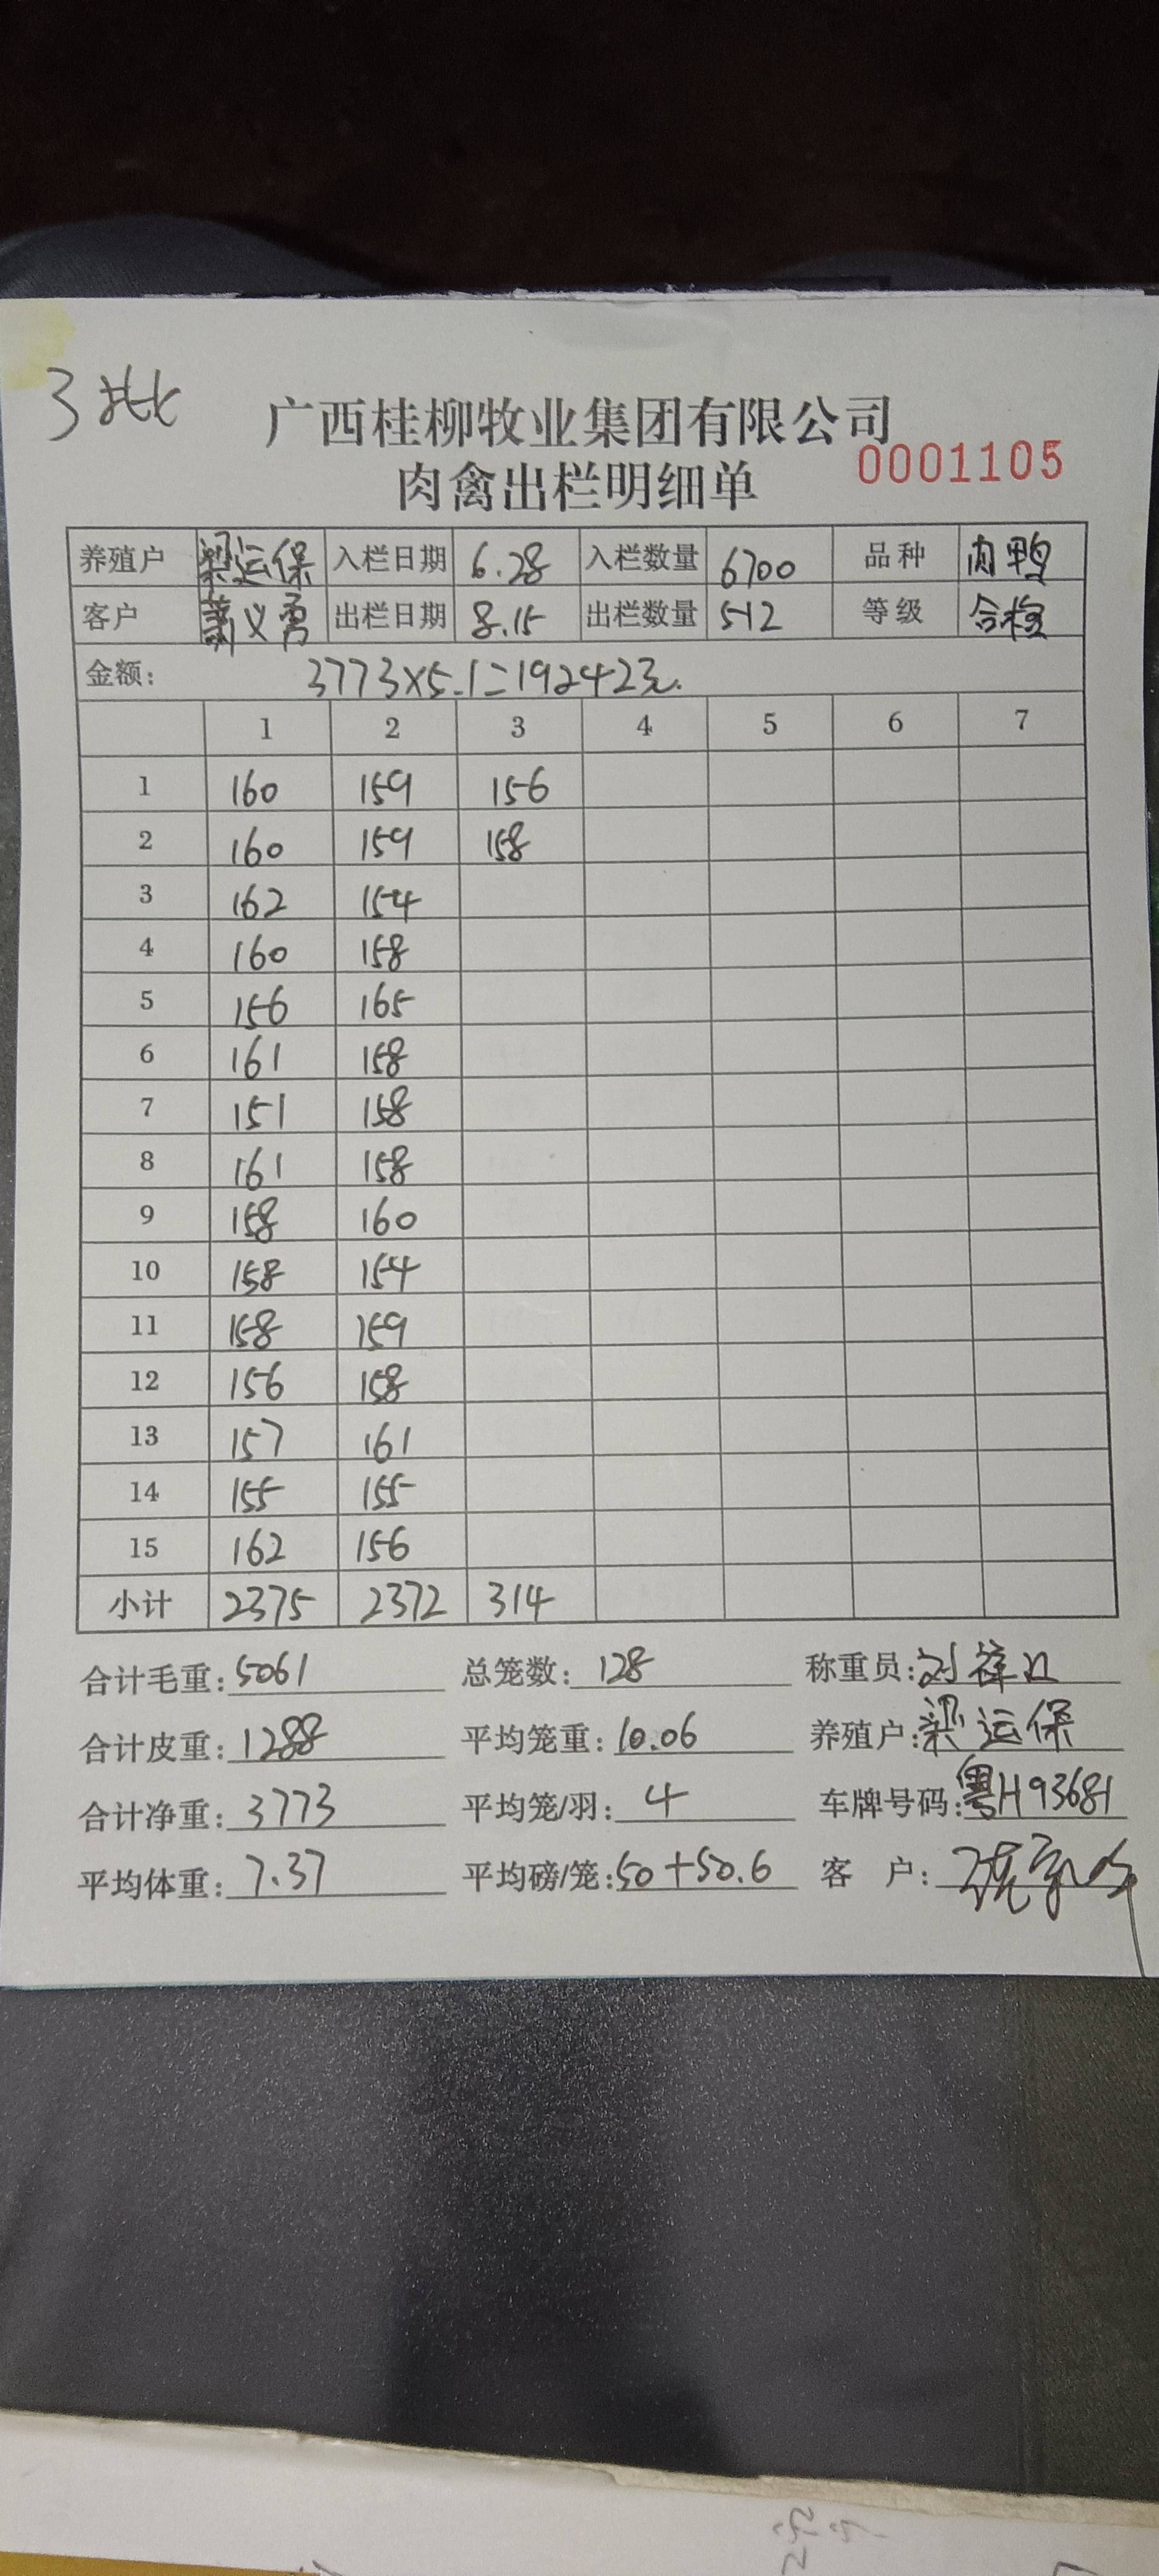 3批
广西桂柳牧业集团有限公司
肉禽出栏明细单 0001105
养殖户 梁运保 入栏日期 6.28 入栏数量 6700 品种 肉鸭
客户 义勇 出栏日期 8.15 出栏数量 512 等级 合格
金额: 3773×5.1=19242元.
1 2 3 4 5 6 7
1 160 159 156
2 160 159 158
3 162 154
4 160 158
5 156 165
6 161 158
7 151 158
8 161 158
9 158 160
10 158 154
11 158 159
12 156 158
13 157 161
14 155 155
15 162 156
小计 2375 2372 314
合计毛重: 5061 总笼数: 128 称重员: 刘祥
合计皮重: 1288 平均笼重: 10.06 养殖户: 梁运保
合计净重: 3773 平均笼/羽: 4 车牌号码: 粤H93681
平均体重: 7.37 平均磅/笼: 50+50.6 客户: